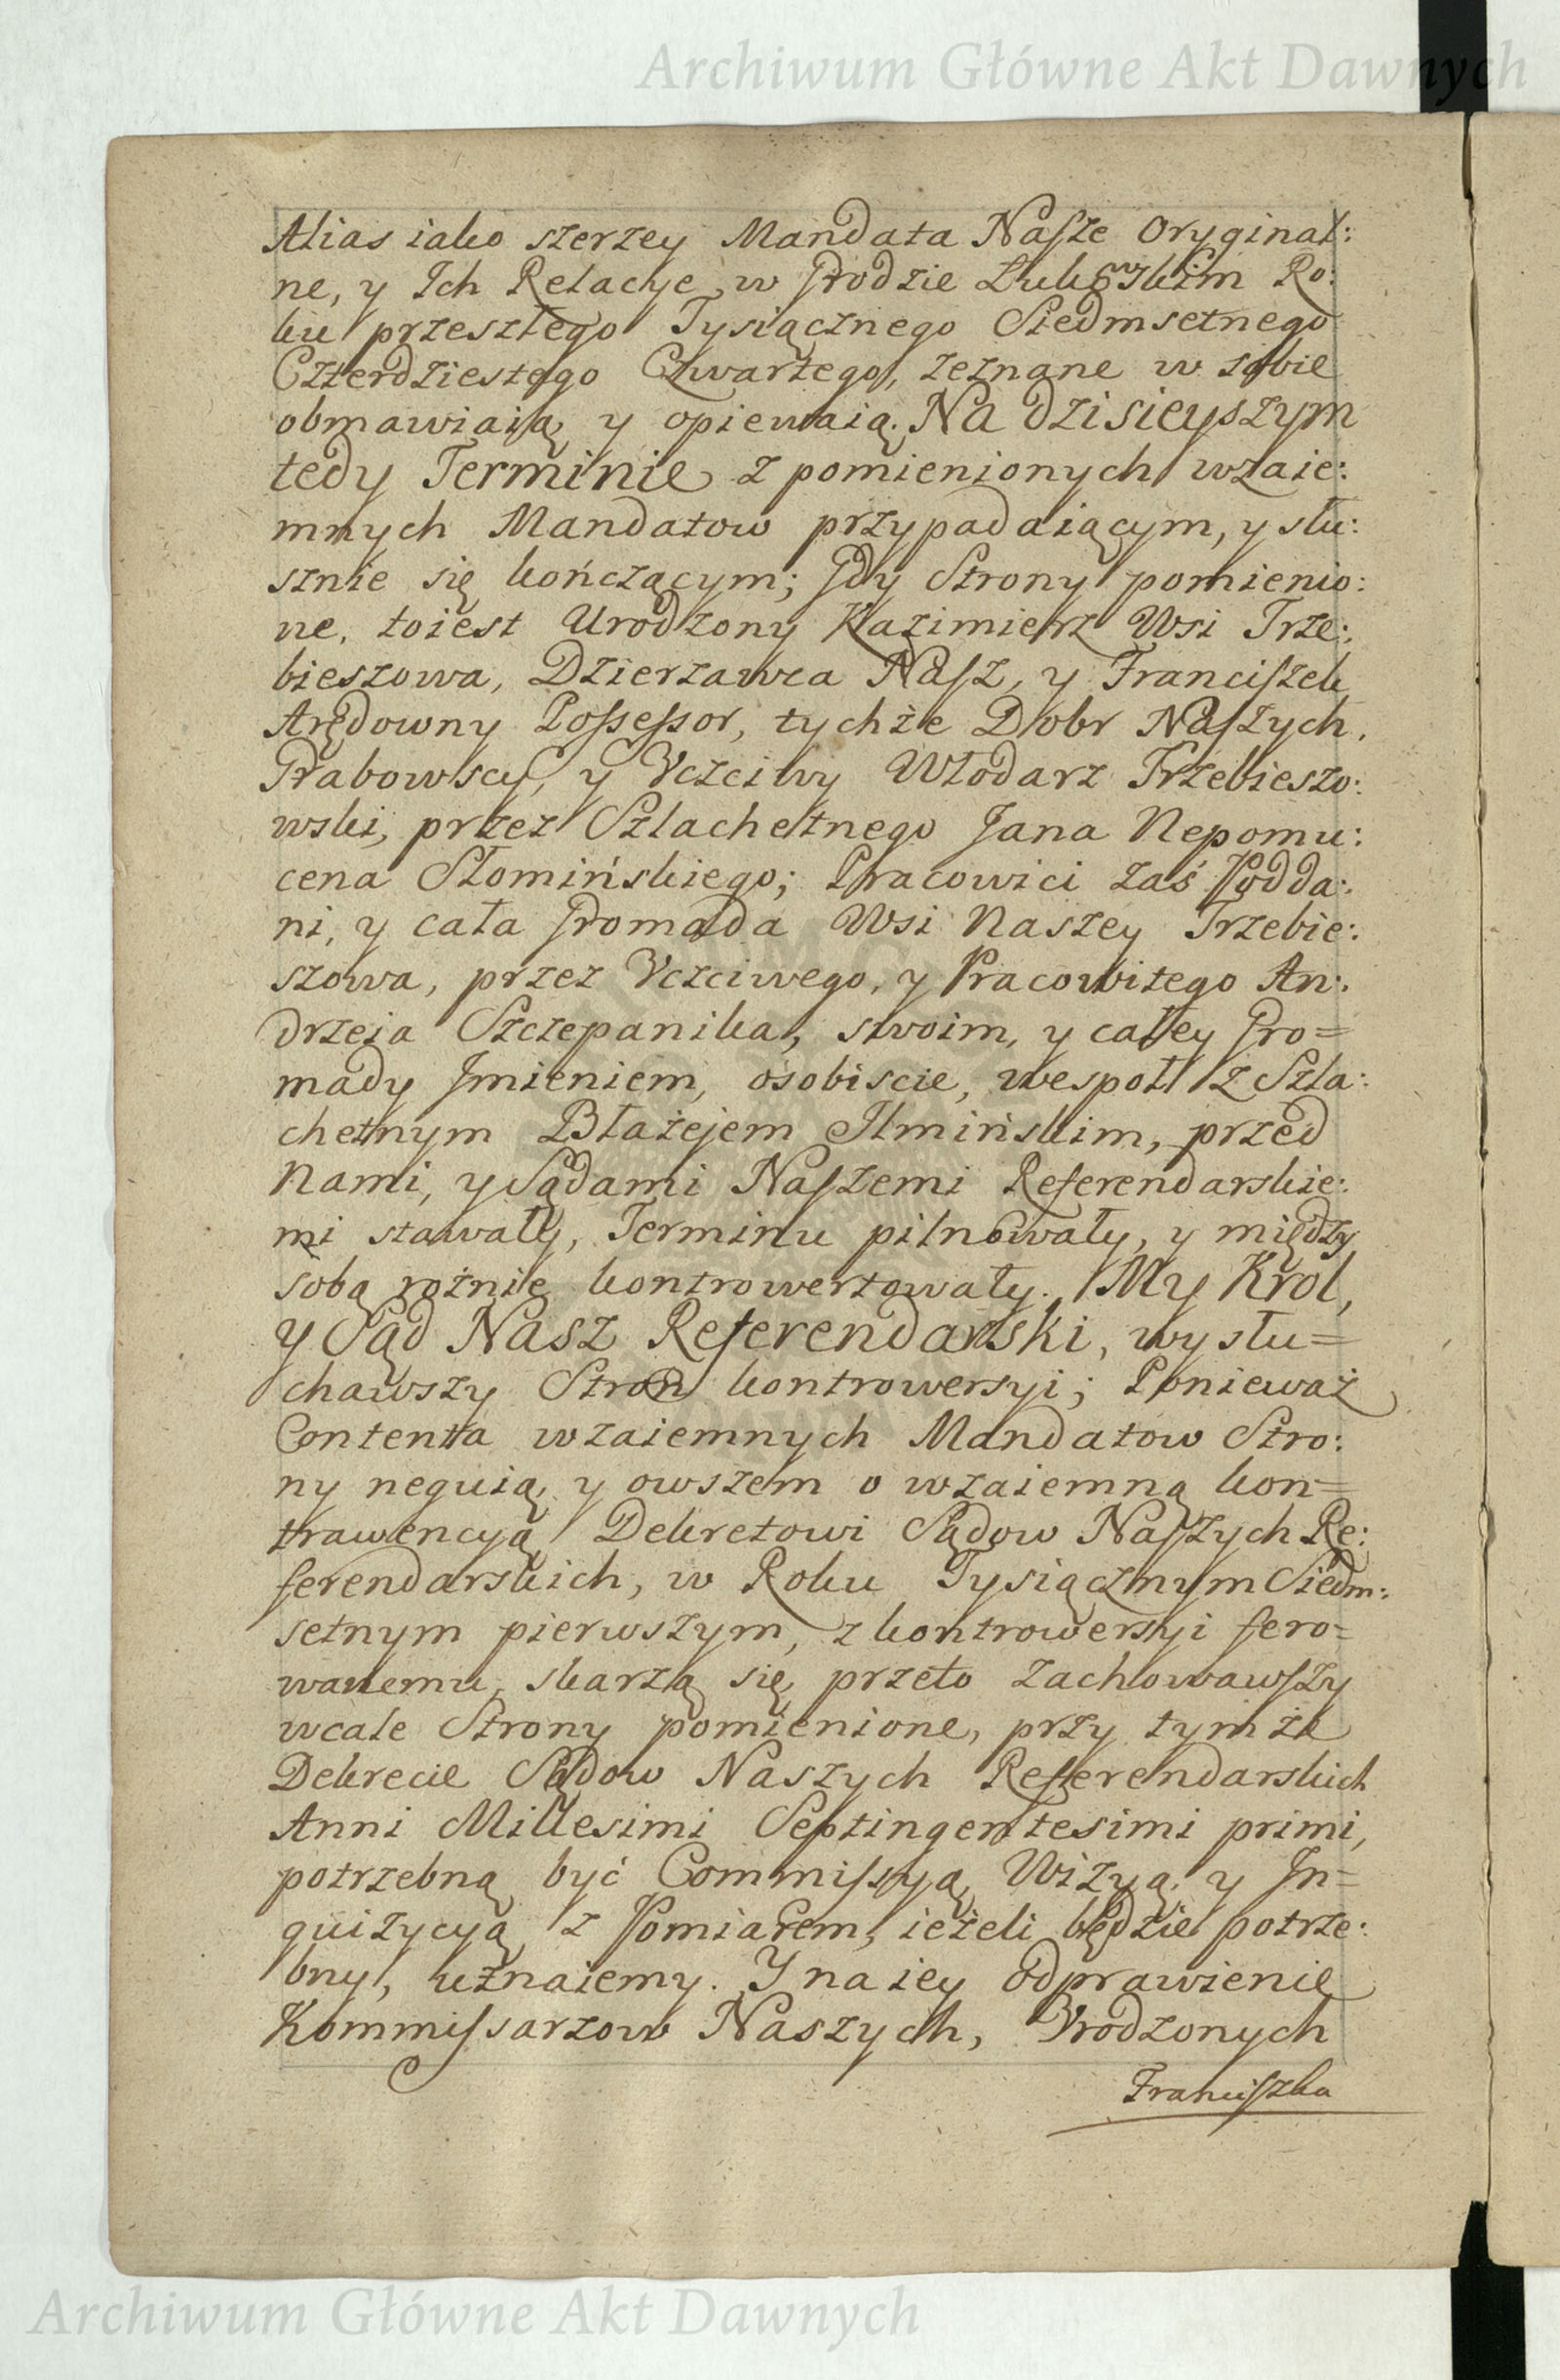 Archiwum Główne Akt Dawnych
Alias iako szerzey Mandata Nasze Oryginal:
ne, y Ich Relacye w Grodzie Łukowskim Ro:
ku przeszłego Tysiącznego Siedmsetnego
Czterdziestego Czwartego, zeznane w sobie
obmawiaią, y opiewaią. Na dzisieyszym
tedy Terminie z pomienionych wzaie:
mnych Mandatow przypadaiącym, y słu:
sznie się kończącym; Gdy Strony pomienio:
ne, toiest Urodzony Kazimierz Wsi Trze:
bieszowa, Dzierzawca Nasz, y Franciszek
Arędowny Possessor, tychże Dobr Naszych,
Grabowscy, y Vczciwy Włodarz Trzebieszo:
wski, przez Szlachetnego Jana Nepomu:
cena Słomińskiego; Pracowici zaś Podda:
ni, y cała Gromada Wsi Naszey Trzebie:
szowa, przez Vczciwego, y Pracowitego An:
drzeia Szczepanika, swoim, y całey Gro=
mady Jmieniem, osobiscie, wespoł z Szla:
chetnym Błażejem Ilmińskim, przed
Nami, y Sądami Naszemi Referendarskie:
mi stawały, Terminu pilnowały, y między
sobą rożnie kontrowertowały. My Krol,
y Sąd Nasz Referendarski, wysłu=
chawszy Stron kontrowersyi; Ponieważ
Contenta wzaiemnych Mandatow Stro:
ny neguią, y owszem o wzaiemną kon=
trawencyą Dekretowi Sądow Naszych Re:
ferendarskich, w Roku Tysiącznym Siedm:
setnym pierwszym, z kontrowersyi fero=
wanemu, skarzą się, przeto zachowawszy
wcale Strony pomienione, przy tymże
Dekrecie Sądow Naszych Referendarskich
Anni Millesimi Septingentesimi primi,
potrzebną być Commissyą, Wizyą, y In=
quizycyą z Pomiarem, ieżeli będzie potrze:
bny, uznaiemy. Y na iey odprawienie
Kommissarzow Naszych, Vrodzonych
Franciszka
Archiwum Główne Akt Dawnych